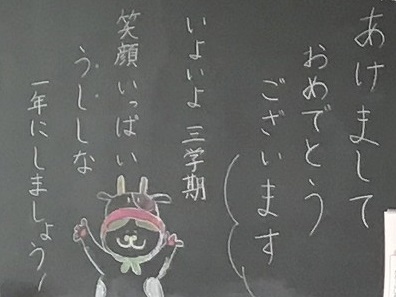 あけまして
おめでとう
ございます
いよいよ 三学期
笑顔いっぱい
うししな
一年にしましょう！